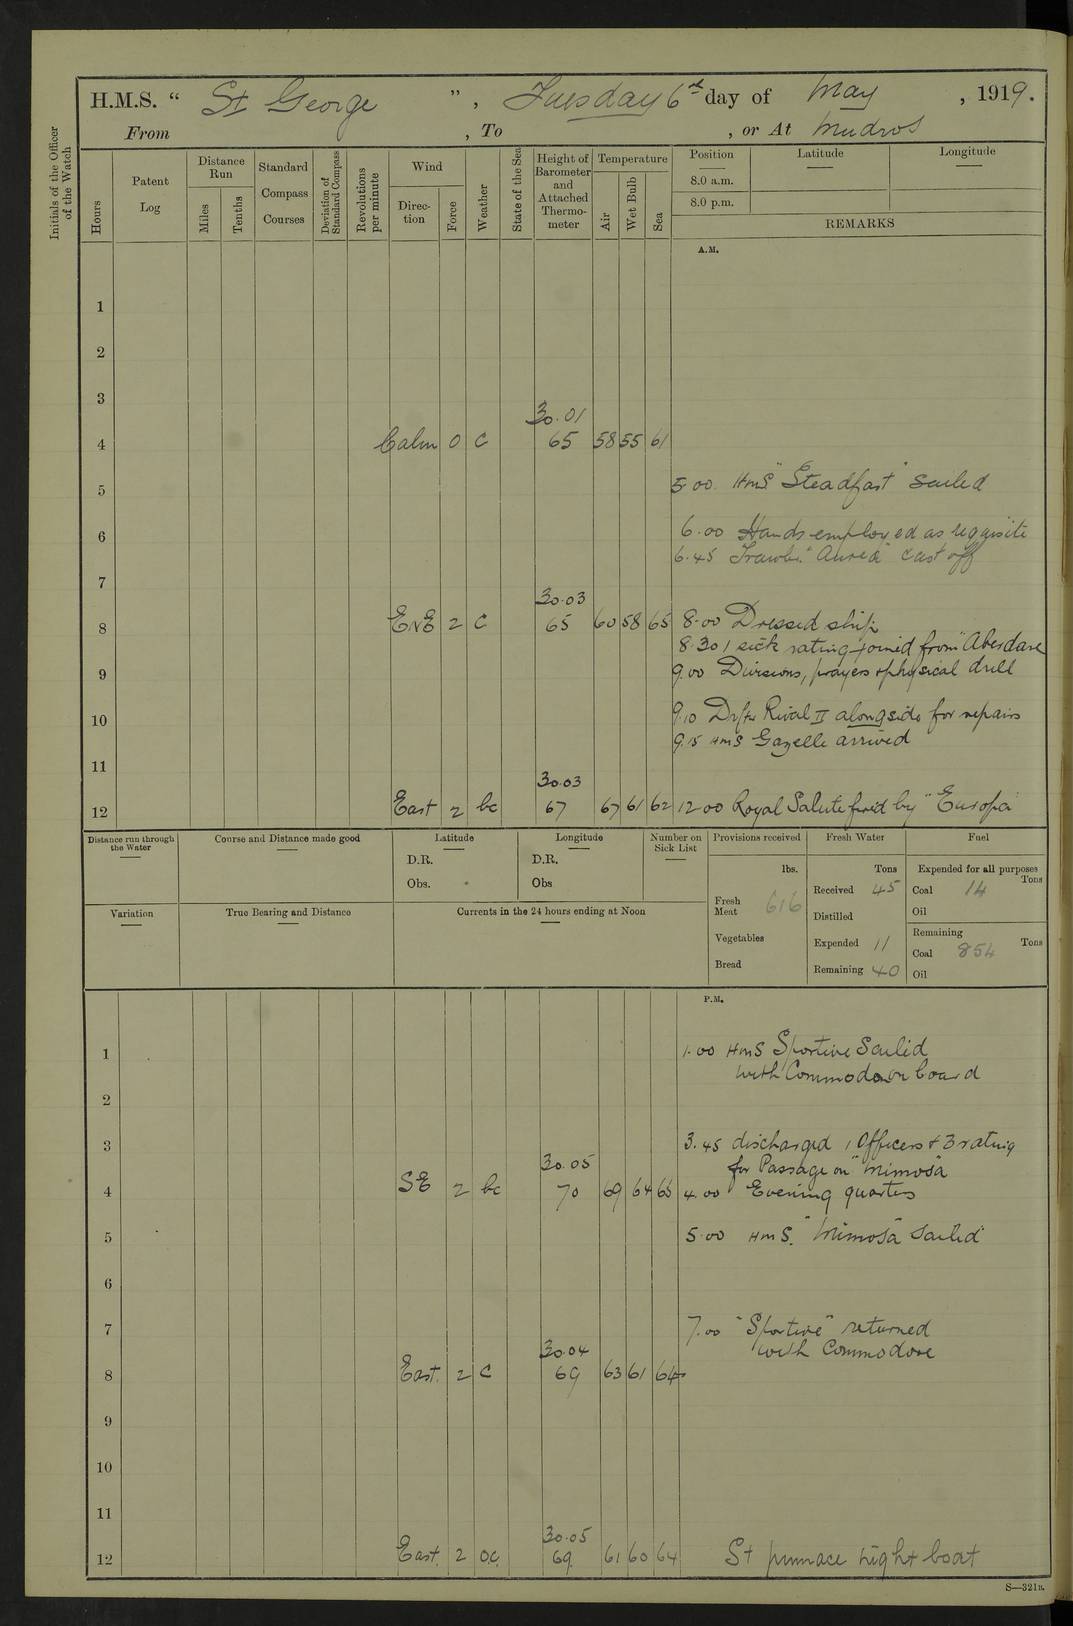 H.M.S. “ St George ” , Tuesday 6th day of May , 1919.
From , To , or At Mudros
Initials of the Officer of the Watch
Hours
Patent Log
Distance Run
Miles
Tenths
Standard Compass Courses
Deviation of Standard Compass
Revolutions per minute
Wind
Direc-tion
Force
Weather
State of the Sea
Height of Barometer and Attached Thermo-meter
Temperature
Air
Wet Bulb
Sea
Position
8.0 a.m.
8.0 p.m.
Latitude
Longitude
REMARKS
A.M.
1
2
3
30.01
4 Calm 0 c 65 58 55 61
5 5.00 HMS "Steadfast" sailed
6 6.00 Hands employed as requisite
6.45 Trawler "Aurea" cast off
7
30.03
8 ENE 2 c 65 60 58 65 8.00 Dressed ship
8.30 1 sick rating joined from "Aberdare
9 9.00 Divisions, prayers & physical drill
10 9.10 Drifter Rival II alongside for repairs
9.15 HMS Gazelle arrived
11
30.03
12 East 2 bc 67 67 61 62 12.00 Royal Salute fired by "Europa"
Distance run through the Water
Course and Distance made good
Latitude
D.R.
Obs.
Longitude
D.R.
Obs
Number on Sick List
Provisions received
lbs.
Fresh Meat 616
Vegetables
Bread
Fresh Water
Tons
Received 45
Distilled
Expended 11
Remaining 40
Fuel
Expended for all purposes
Tons
Coal 14
Oil
Remaining
Tons
Coal 854
Oil
Variation
True Bearing and Distance
Currents in the 24 hours ending at Noon
P.M.
1 1.00 HMS Sportive Sailed
with Commodore on board
2
3 3.45 discharged 1 Officers & 3 rating
30.05 for Passage on "Mimosa"
4 SE 2 bc 70 69 64 65 4.00 Evening quarters
5 5.00 HMS. "Mimosa" sailed
6
7 7.00 "Sportive" returned
30.04 with Commodore
8 East. 2 c 69 63 61 64
9
10
11
30.05
12 East. 2 o.c. 69. 61 60 64 St pinnace night boat
S—321B.